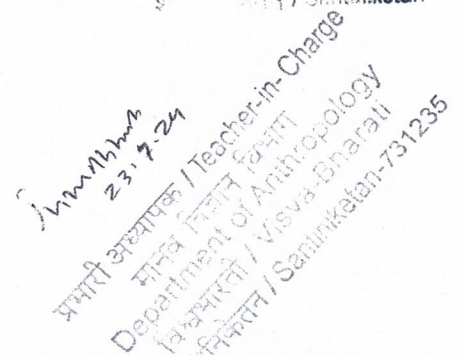 Santiniketan
23.7.24
प्रभारी अध्यापक / Teacher-in-Charge
मानव विज्ञान विभाग
Department of Anthropology
विश्वभारती / Visva-Bharati
निकेतन / Santiniketan-731235